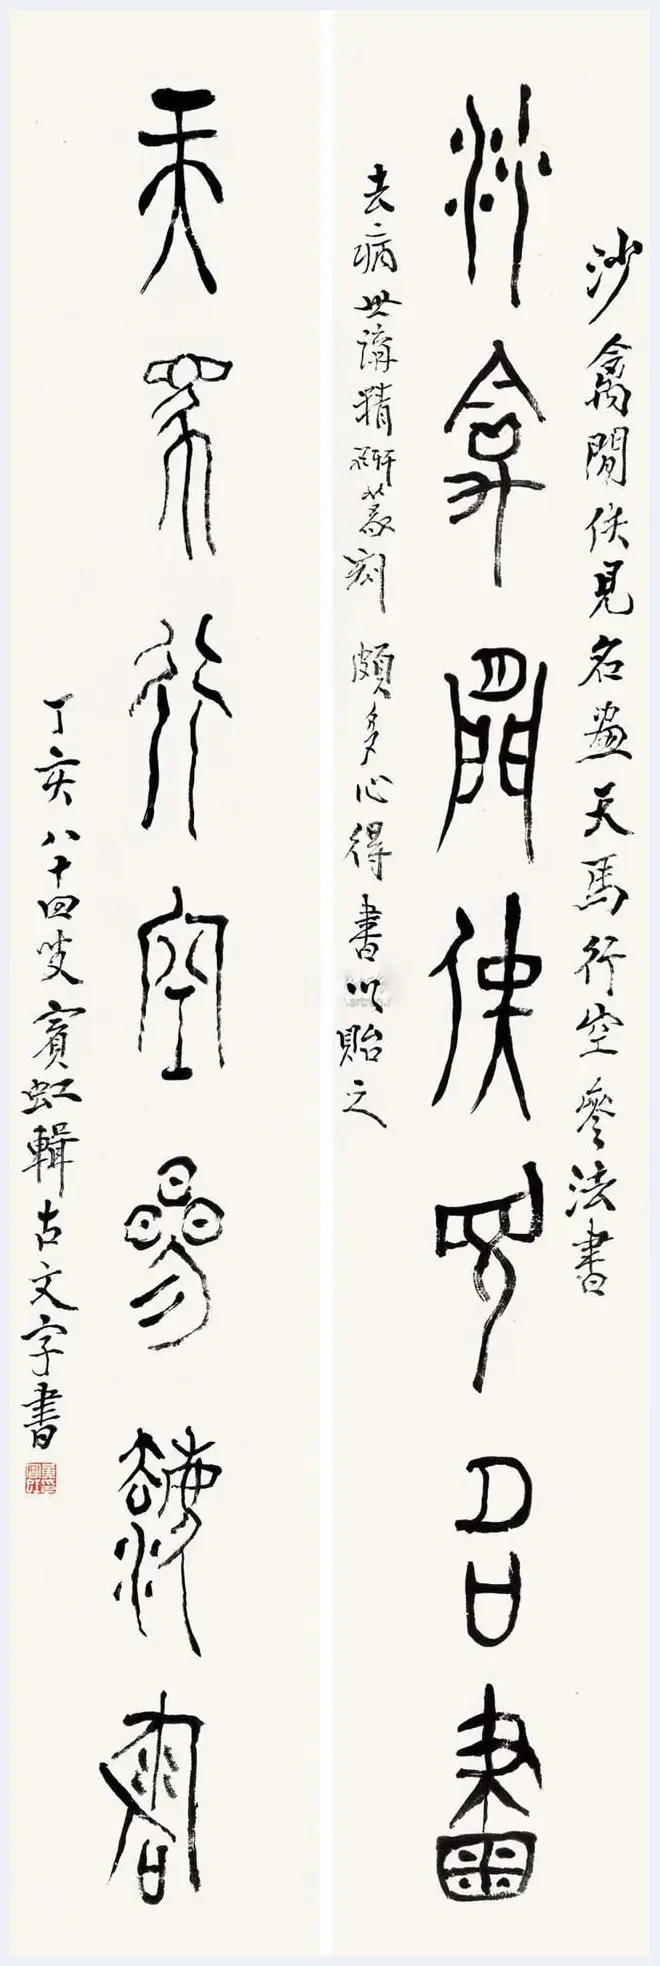 沙禽閒佚見名畫天馬行空參法書
沙禽閒佚見名畫
去病世講精研篆刻頗多心得書以貽之
天馬行空參法書
丁亥八十四叟賓虹輯古文字書